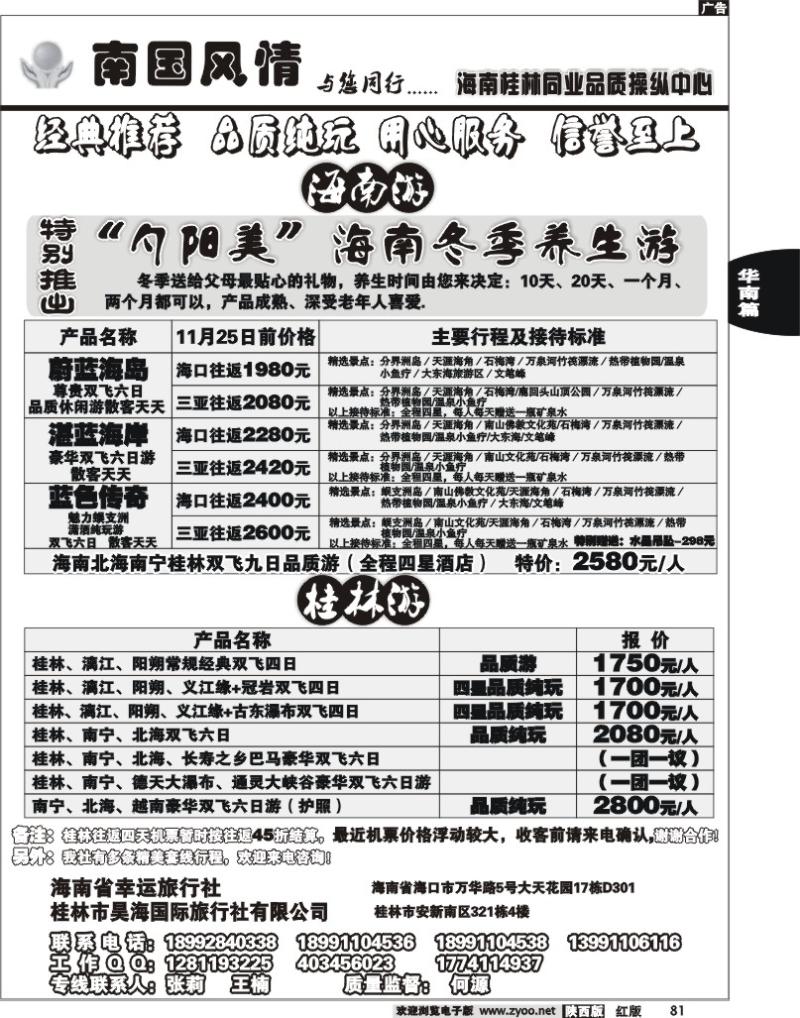 广告
南国风情 与您同行...... 海南桂林同业品质操纵中心
经典推荐 品质纯玩 用心服务 信誉至上
海南游
特别推出
“夕阳美”海南冬季养生游
冬季送给父母最贴心的礼物，养生时间由您来决定：10天、20天、一个月、
两个月都可以，产品成熟、深受老年人喜爱.
华南篇
产品名称 11月25日前价格 主要行程及接待标准
蔚蓝海岛
尊贵双飞六日
品质休闲游散客天天
海口往返1980元
精选景点：分界洲岛/天涯海角/石梅湾/万泉河竹筏漂流/热带植物园/温泉
小鱼疗/大东海旅游区/文笔峰
三亚往返2080元
精选景点：分界洲岛/天涯海角/石梅湾/鹿回头山顶公园/万泉河竹筏漂流/
热带植物园/温泉小鱼疗
以上接待标准：全程四星，每人每天赠送一瓶矿泉水
湛蓝海岸
豪华双飞六日游
散客天天
海口往返2280元
精选景点：分界洲岛/天涯海角/南山佛教文化苑/石梅湾/万泉河竹筏漂流/
热带植物园/温泉小鱼疗/大东海/文笔峰
三亚往返2420元
精选景点：分界洲岛/天涯海角/南山文化苑/石梅湾/万泉河竹筏漂流/热带
植物园/温泉小鱼疗
以上接待标准：全程四星，每人每天赠送一瓶矿泉水
蓝色传奇
魅力蜈支洲
潇洒纯玩游
双飞六日 散客天天
海口往返2400元
精选景点：蜈支洲岛/南山佛教文化苑/天涯海角/石梅湾/万泉河竹筏漂流/
热带植物园/温泉小鱼疗/大东海/文笔峰
三亚往返2600元
精选景点：蜈支洲岛/南山文化苑/天涯海角/石梅湾/万泉河竹筏漂流/热带
植物园/温泉小鱼疗
以上接待标准：全程四星，每人每天赠送一瓶矿泉水 特别赠送：水晶吊坠-298元
海南北海南宁桂林双飞九日品质游（全程四星酒店） 特价：2580元/人
桂林游
产品名称 报 价
桂林、漓江、阳朔常规经典双飞四日 品质游 1750元/人
桂林、漓江、阳朔、义江缘+冠岩双飞四日 四星品质纯玩 1700元/人
桂林、漓江、阳朔、义江缘+古东瀑布双飞四日 四星品质纯玩 1700元/人
桂林、南宁、北海双飞六日 品质纯玩 2080元/人
桂林、南宁、北海、长寿之乡巴马豪华双飞六日 （一团一议）
桂林、南宁、德天大瀑布、通灵大峡谷豪华双飞六日游 （一团一议）
南宁、北海、越南豪华双飞六日游（护照） 品质纯玩 2800元/人
备注：桂林往返四天机票暂时按往返45折结算，最近机票价格浮动较大，收客前请来电确认,谢谢合作!
另外：我社有多条精美套线行程，欢迎来电咨询!
海南省幸运旅行社 海南省海口市万华路5号大天花园17栋D301
桂林市昊海国际旅行社有限公司 桂林市安新南区321栋4楼
联系电话：18992840338 18991104536 18991104538 13991106116
工作QQ：1281193225 403456023 1774114937
专线联系人：张莉 王楠 质量监督：何源
欢迎浏览电子版 www.zyoo.net 陕西版 红版 81